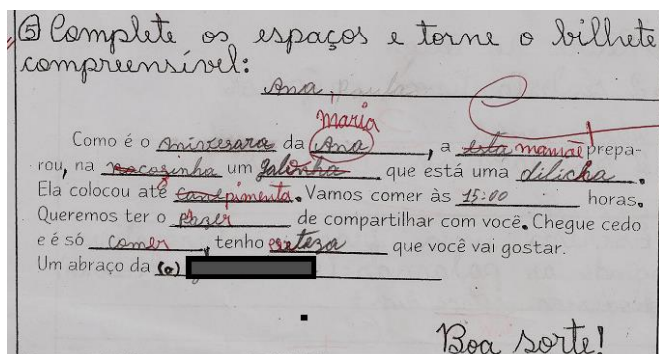 ⑤ Complete os espaços e torne o bilhete
compreensível:
Ana,
maria
Como é o aniversara da Ana, a esta mamãe prepa-
rou, na cozinha um galinha que está uma dilicha.
Ela colocou até pimenta. Vamos comer às 15:00 horas.
Queremos ter o prazer de compartilhar com você. Chegue cedo
e é só comer, tenho certeza que você vai gostar.
Um abraço da (o)
Boa sorte!